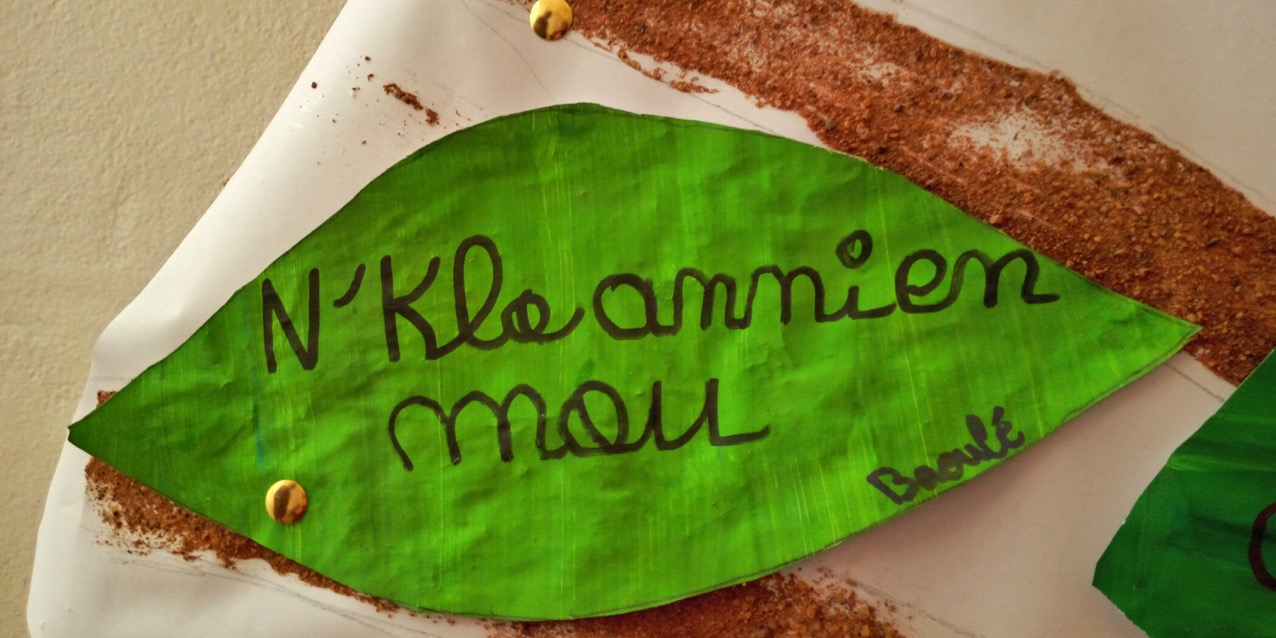 N'Klo annien
mou
Baoulé